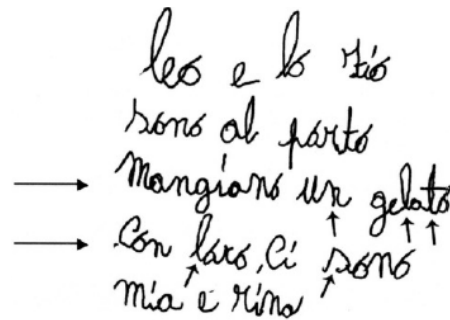 leo e lo zio
sono al porto
mangiano un gelato
con loro ci sono
mia e rino